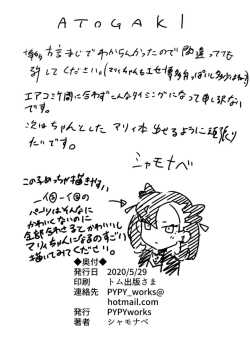 ATOGAKI
博多方言まじでわからんかったので間違ってても
許してください。(マリィちゃんもエセ博多弁っぽいし多分
エアコミケ間に合わずこんなタイミングになって申し訳ない
です。
次はちゃんとした マリィ本 出せるように頑張り
たいです。
シャモナベ
この子めっちゃ描きやすい
一個一個の
パーツはそんなに
かわいくないのに
全部合わせるとかわいい
マリィちゃんになるのすごい
描いてみてください
◆奥付◆
発行日 2020/5/29
印刷 トム出版さま
連絡先 PYPY_works@
hotmail.com
発行 PYPYworks
著者 シャモナベ